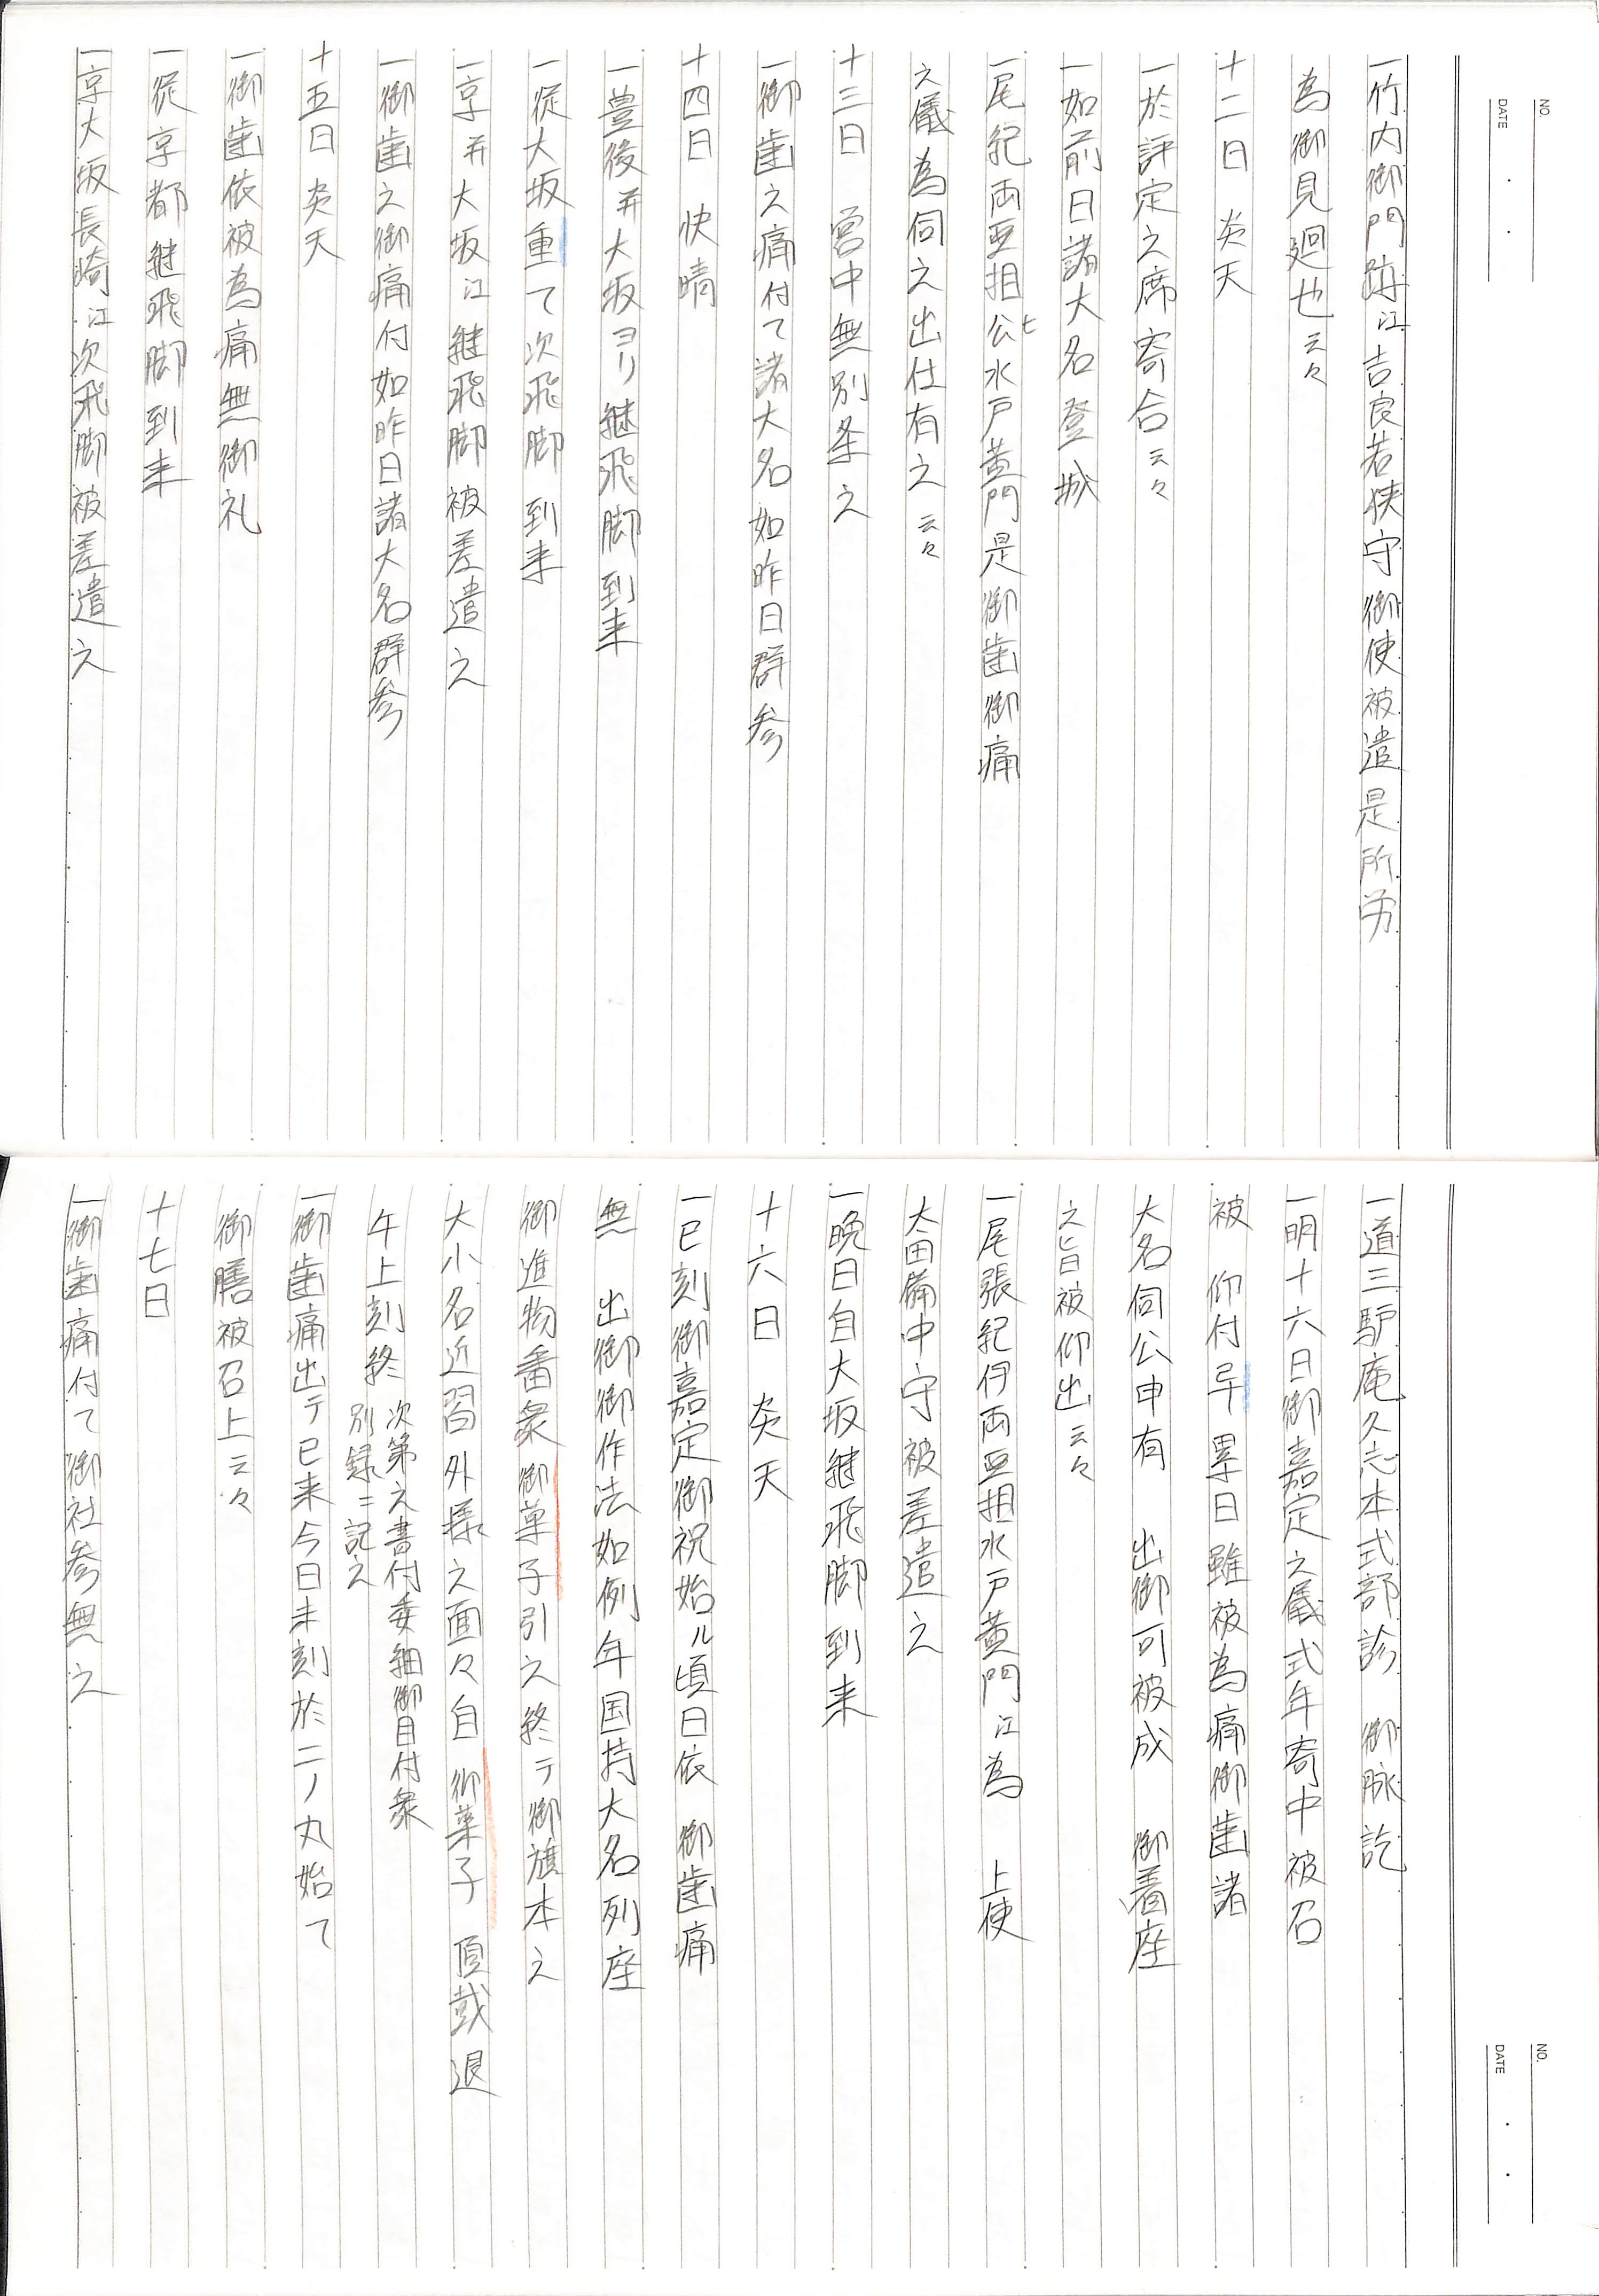 NO.
DATE
一竹内御門跡江吉良若狭守御使被遣是所労
為御見廻也云々
十二日 炎天
一於評定之席寄合云々
一如前日諸大名登城
一尾紀両亜相公水戸黄門是御歯御痛
之儀為伺之出仕有之云々
十三日 営中無別条之
一御歯之痛付て諸大名如昨日群参
十四日 快晴
一豊後并大坂ヨリ継飛脚到来
一従大坂重て次飛脚到来
一京并大坂江継飛脚被差遣之
一御歯之御痛付如昨日諸大名群参
十五日 炎天
一御歯依被為痛無御礼
一従京都継飛脚到来
一京大坂長崎江次飛脚被差遣之
NO.
DATE
一道三驢庵久志本式部診 御脉訖
一明十六日御嘉定之儀式年寄中被召
被 仰付畢累日雖被為痛御歯諸
大名伺公申有 出御可被成 御着座
之旨被仰出云々
一尾張紀伊両亜相水戸黄門江為 上使
太田備中守被差遣之
一晩日自大坂継飛脚到来
十六日 炎天
一巳刻御嘉定御祝始ル頃日依 御歯痛
無 出御御作法如例年国持大名列座
御進物番衆御菓子引之終テ御旗本之
大小名近習外様之面々自御菓子 頂戴退
午上刻終 次第之書付委細御目付衆
別録ニ記之
一御歯痛出テ已来今日未刻於二ノ丸始て
御膳被召上云々
十七日
一御歯痛付て御社参無之